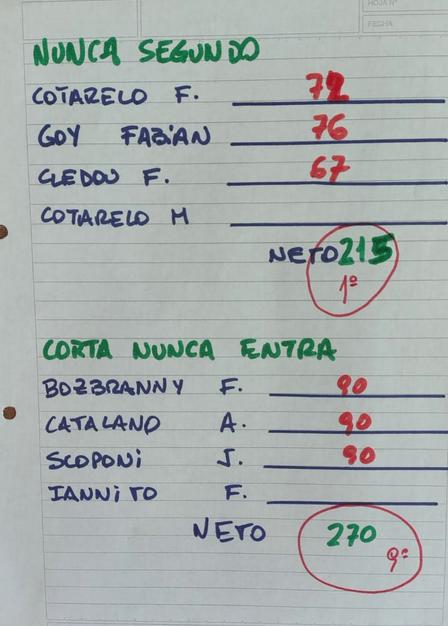 HOJA Nº
FECHA
NUNCA SEGUNDO
COTARELO F. 72
GOY FABIAN 76
CLEDOU F. 67
COTARELO M
NETO 215
1º
CORTA NUNCA ENTRA
BOZBRANNY F. 90
CATALANO A. 90
SCOPONI J. 90
IANNITO F.
NETO 270
9º